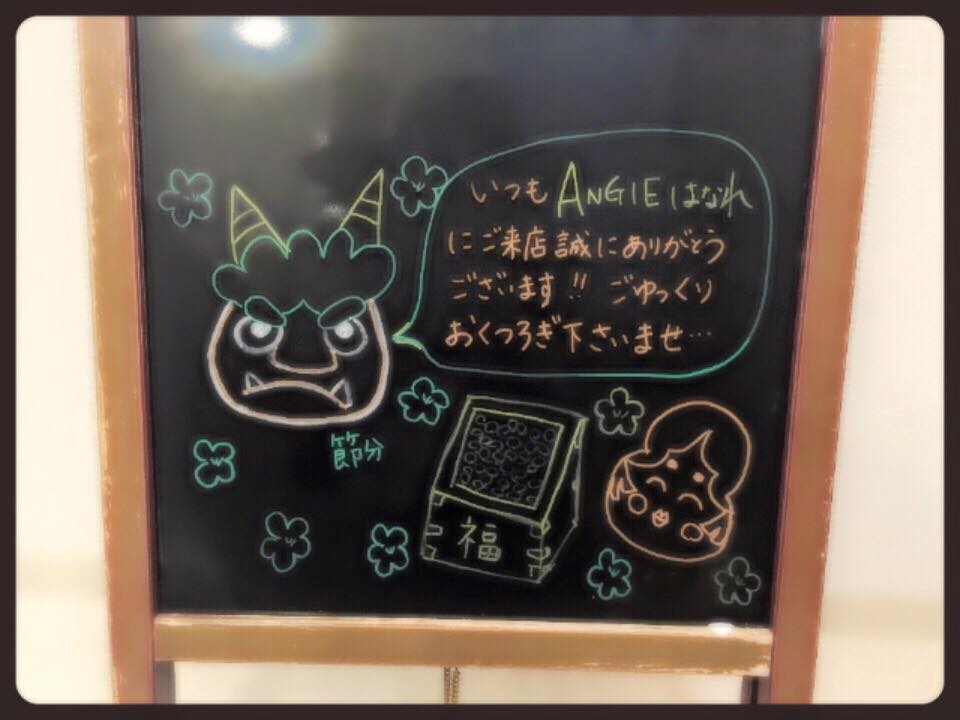 いつも ANGIE はなれ
にご来店誠にありがとう
ございます!! ごゆっくり
おくつろぎ下さいませ…
節分
福